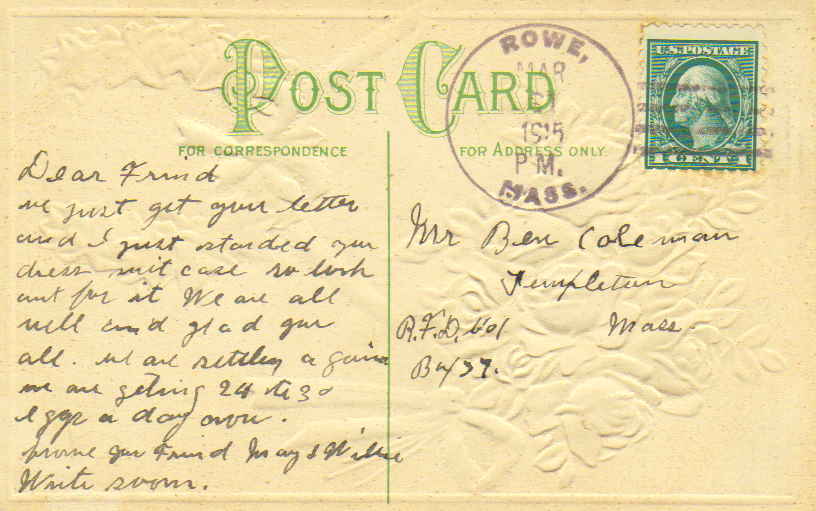 POST CARD
FOR CORRESPONDENCE
FOR ADDRESS ONLY.
ROWE,
MAR
1915
P.M.
MASS.
U.S. POSTAGE
1 CENT 1
Dear Frind
we just get your letter
and I just starded your
dress suit case so look
out for it We are all
well and glad your
all. we are settley a gain
we are geting 24 to 30
eggs a day now.
your Frind May & Willie
Write soon.
Mr Ben Coleman
Templeton
Mass.
R.F.D.
Box 37.